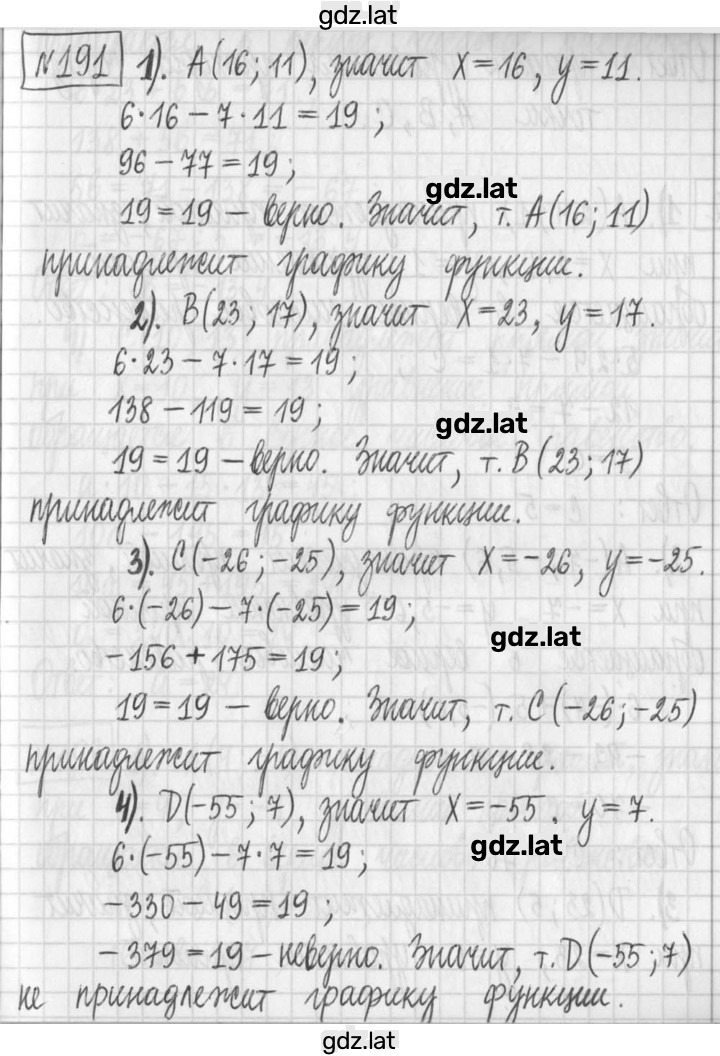 gdz.lat
№191 1). A(16; 11), значит x=16, y=11.
6·16 – 7·11 = 19;
96 – 77 = 19;
gdz.lat
19 = 19 – верно. Значит, т. A(16; 11)
принадлежит графику функции.
2). B(23; 17), значит x=23, y=17.
6·23 – 7·17 = 19;
138 – 119 = 19;
gdz.lat
19 = 19 – верно. Значит, т. B(23; 17)
принадлежит графику функции.
3). C(-26; -25), значит x=-26, y=-25.
6·(-26) – 7·(-25) = 19;
gdz.lat
-156 + 175 = 19;
19 = 19 – верно. Значит, т. C(-26; -25)
принадлежит графику функции.
4). D(-55; 7), значит x=-55, y=7.
gdz.lat
6·(-55) – 7·7 = 19;
-330 – 49 = 19;
-379 = 19 – неверно. Значит, т. D(-55; 7)
не принадлежит графику функции.
gdz.lat